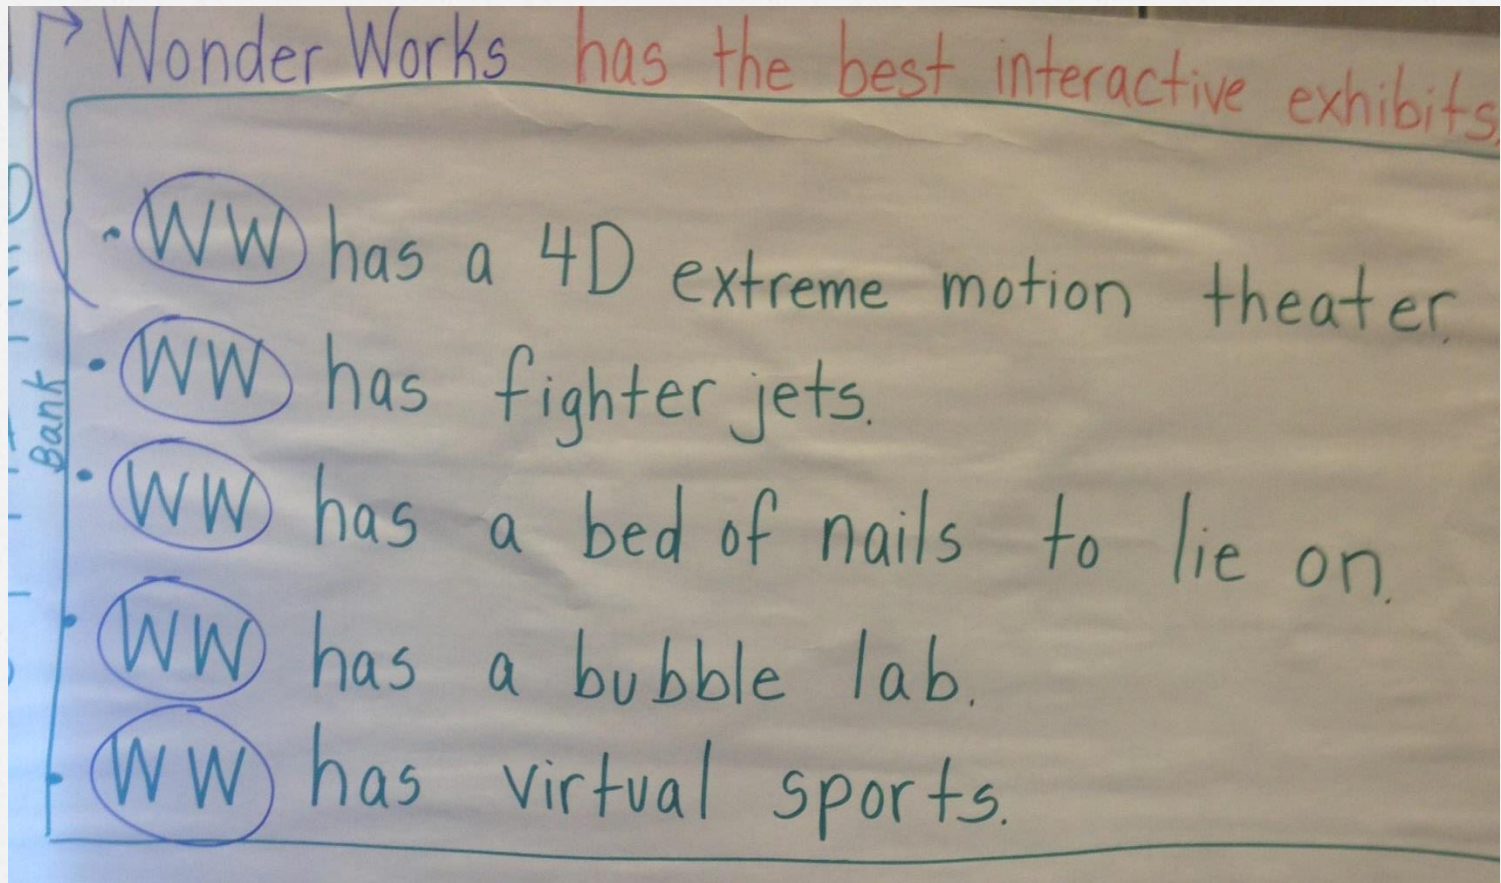 Wonder Works has the best interactive exhibits.
• WW has a 4D extreme motion theater.
• WW has fighter jets.
Bank
• WW has a bed of nails to lie on.
• WW has a bubble lab.
• WW has virtual sports.